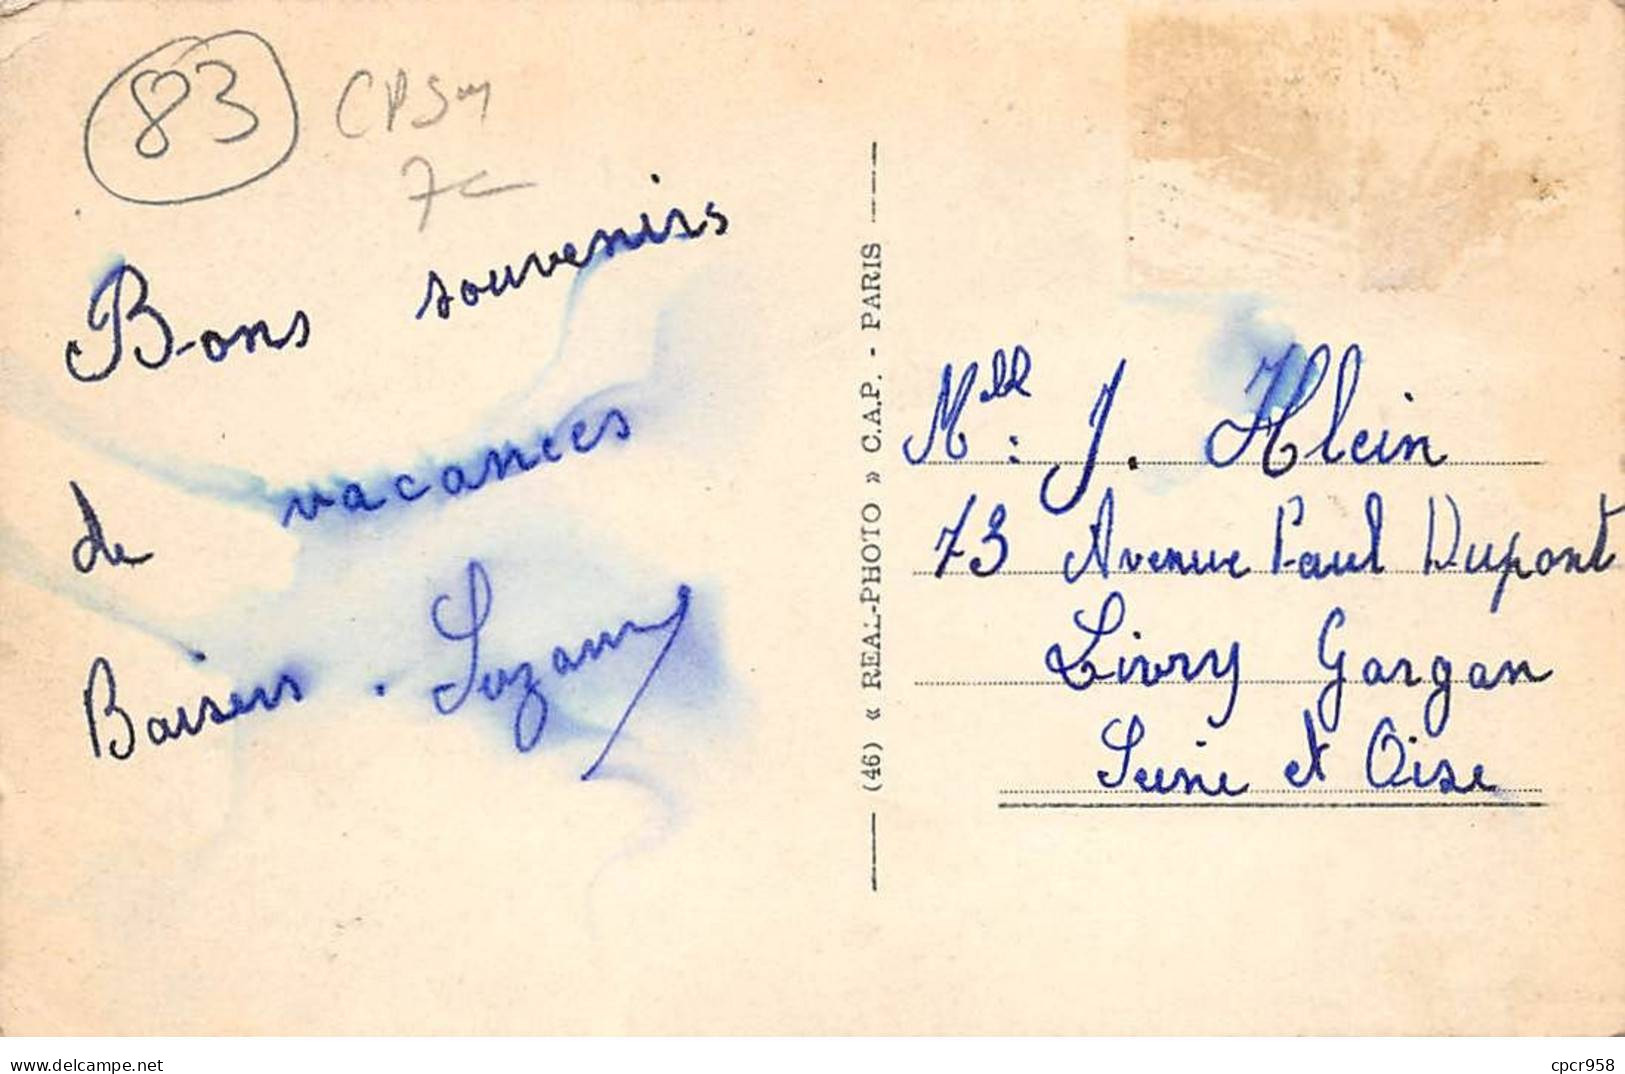 83
CPSM
7€
Bons souvenirs
de vacances
Baisers. Suzanne
(46) « REAL-PHOTO » C.A.P. - PARIS
Mlle: J. Klein
73 Avenue Paul Dupont
Livry Gargan
Seine et Oise
delcampe.net
cpcr958